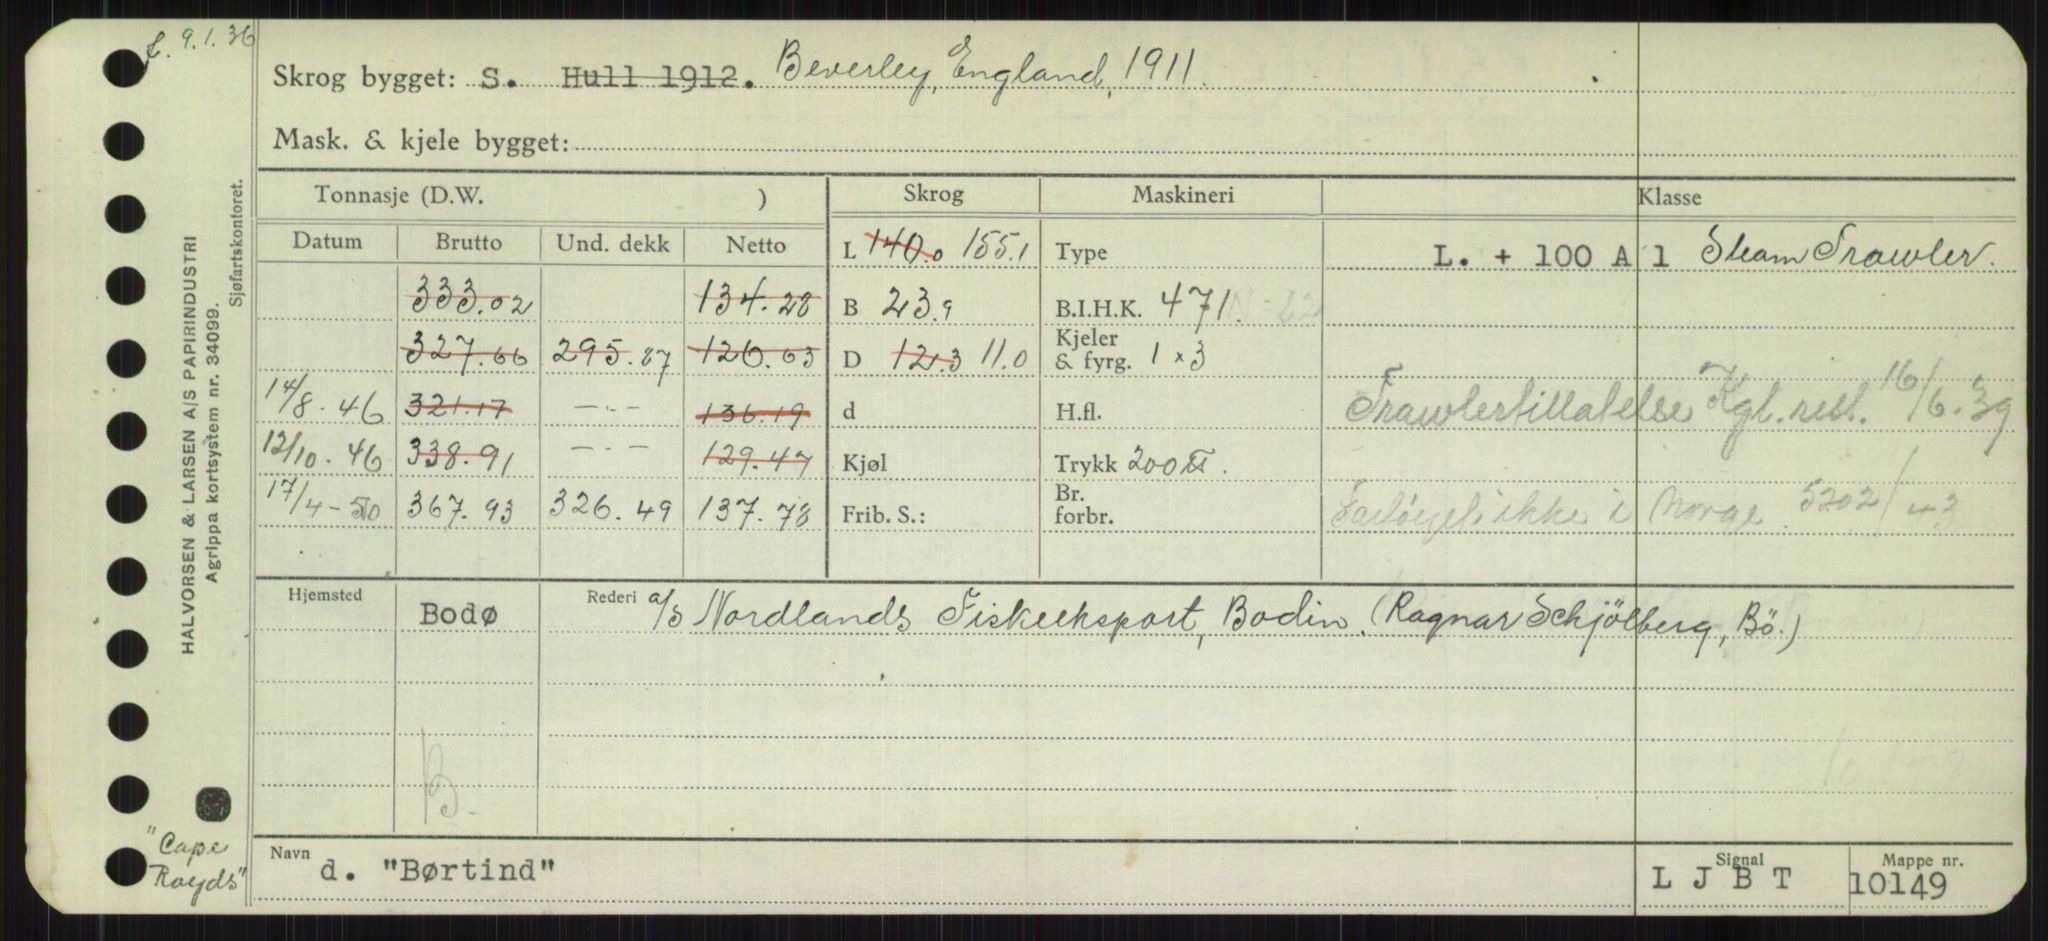 f. 9.1.36
Skrog bygget: S. Hull 1912. Beverley, England, 1911.
Mask. & kjele bygget:
HALVORSEN & LARSEN A/S PAPIRINDUSTRI
Agrippa kortsystem nr. 34099.
Sjøfartskontoret.
Tonnasje (D.W. ) Skrog Maskineri Klasse
Datum Brutto Und. dekk Netto L 140.0 155.1 Type L. + 100 A 1 Steam Trawler.
333.02 134.28 B 23.9 B.I.H.K. 471.
327.66 295.87 126.63 D 12.3 11.0 Kjeler & fyrg. 1 x 3
14/8. 46 321.17 —·— 136.19 d H.fl. Trawlertillatelse Kgl. res. 16/6. 39
12/10. 46 338.91 —·— 129.47 Kjøl Trykk 200 ℔.
17/4 - 50 367.93 326.49 137.78 Frib. S.: Br. forbr. ikke i Norge 5202/43
Hjemsted Bodø Rederi a/s Nordlands Fiskeeksport, Bodin. (Ragnar Schjölberg, Bö.)
B.
"Cape Royds"
Navn d. "Børtind" Signal L J B T Mappe nr. 10149